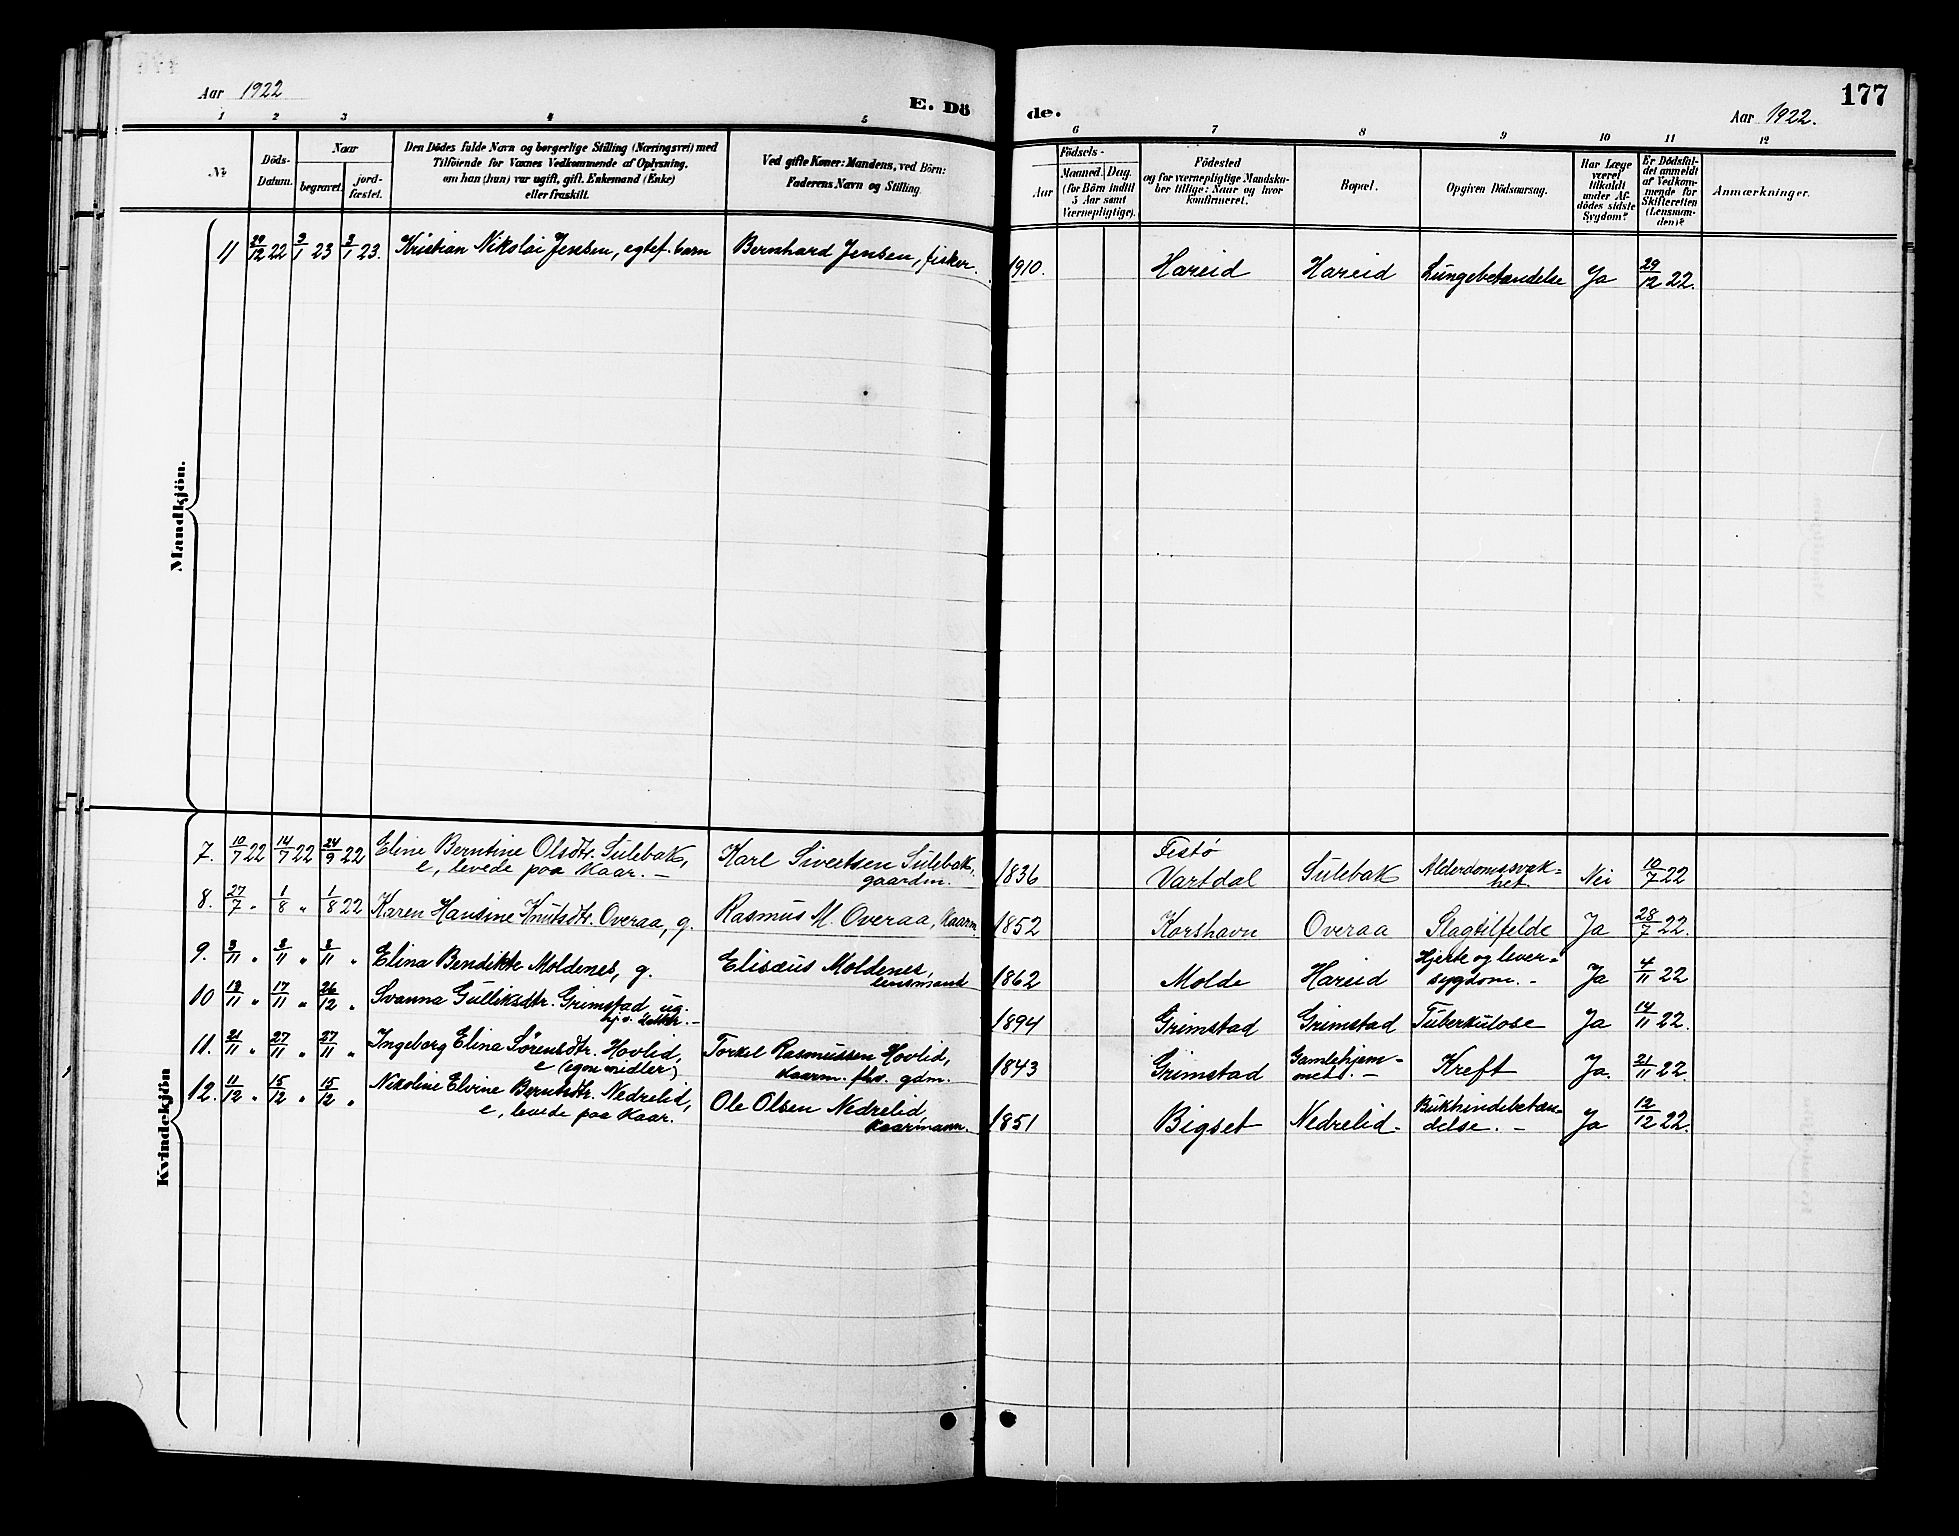 Aar 1922
E. Dö
de.
Aar 1922.
177
1 2 3 4 5 6 7 8 9 10 11 12
Nr.
Döds-
Datum.
Naar
begravet.
jord-
fæstet.
Den Dödes fulde Navn og borgerlige Stilling (Næringsvei) med
Tilföiende for Voxnes Vedkommende af Oplysning.
om han (hun) var ugift, gift, Enkemand (Enke)
eller fraskilt.
Ved gifte Koner: Mandens, ved Börn:
Faderens Navn og Stilling.
Födsels-
Aar
Maaned. Dag.
(for Börn indtil
5 Aar samt
Værnepligtige).
Födested
og for værnepligtige Mandska-
ber tillige: Naar og hvor
konfirmeret.
Bopæl.
Opgiven Dödsaarsag.
Har Læge
været
tilkaldt
under Af-
dödes sidste
Sygdom?
Er Dödsfal-
det anmeldt
af Vedkom-
mende for
Skifteretten
(Lensman-
den)?
Anmærkninger.
Mandkjön.
11 29/12 22 3/1 23 3/1 23. Kristian Nikolai Jensen, egtef. barn Bernhard Jensen, fisker. 1910. Hareid Hareid Lungebetændelse Ja 29/12 22.
Kvindekjön
7. 10/7 22 14/7 22 24/9 22 Eline Berntine Olsdtr. Sulebak, Karl Sivertsen Sulebak, 1836 Festö Sulebak Alderdomssvak- Nei 10/7 22
e, levede paa kaar. – gaardm. – Vartdal het.
8. 27/7 „ 1/8 „ 1/8 22 Karen Hansine Knutsdtr. Overaa, g. Rasmus M. Overaa, kaarm. 1852 Korshavn Overaa Slagtilfelde Ja 28/7 22.
9. 3/11 „ 8/11 „ 8/11 „ Elina Bendikte Moldenes, g. Elisæus Moldenes, 1862 Molde Hareid Hjerte og lever- Ja 4/11 22
lensmand sygdom. –
10 13/11 „ 17/11 „ 26/12 „ Svanna Gulliksdtr. Grimstad ug. 1894 Grimstad Grimstad Tuberkulose Ja 14/11 22.
hj.v. datter. –
11. 21/11 „ 27/11 „ 27/11 „ Ingeborg Elina Sörensdtr. Hovlid, Torkel Rasmussen Hovlid, 1843 Grimstad Gamlehjem- Kreft Ja. 21/11 22.
e (egne midler) kaarm. fhv. gdm. met. –
12. 11/12 „ 15/12 „ 15/12 „ Nikoline Elvine Berntsdtr. Nedrelid, Ole Olsen Nedrelid 1851 Bigset Nedrelid. Bukhindebetæn- Ja 12/12 22.
e, levede paa kaar. kaarmann. delse. –